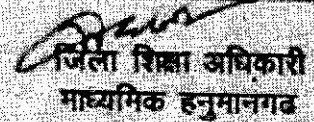 जिला शिक्षा अधिकारी
माध्यमिक हनुमानगढ